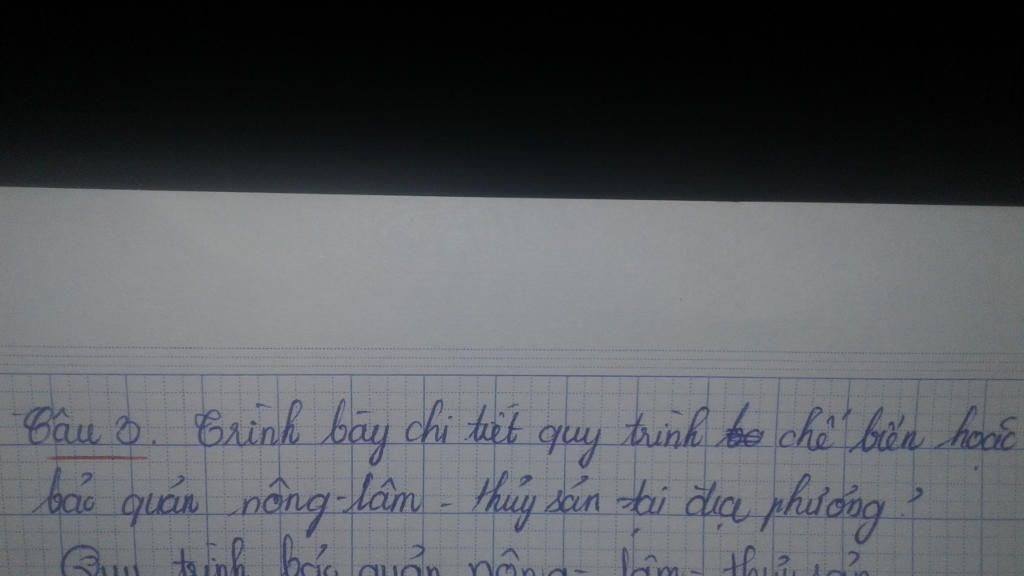 Câu 3. Trình bày chi tiết quy trình chế biến hoặc
bảo quản nông-lâm-thủy sản tại địa phương?
Quy trình bảo quản nông-lâm-thủy sản